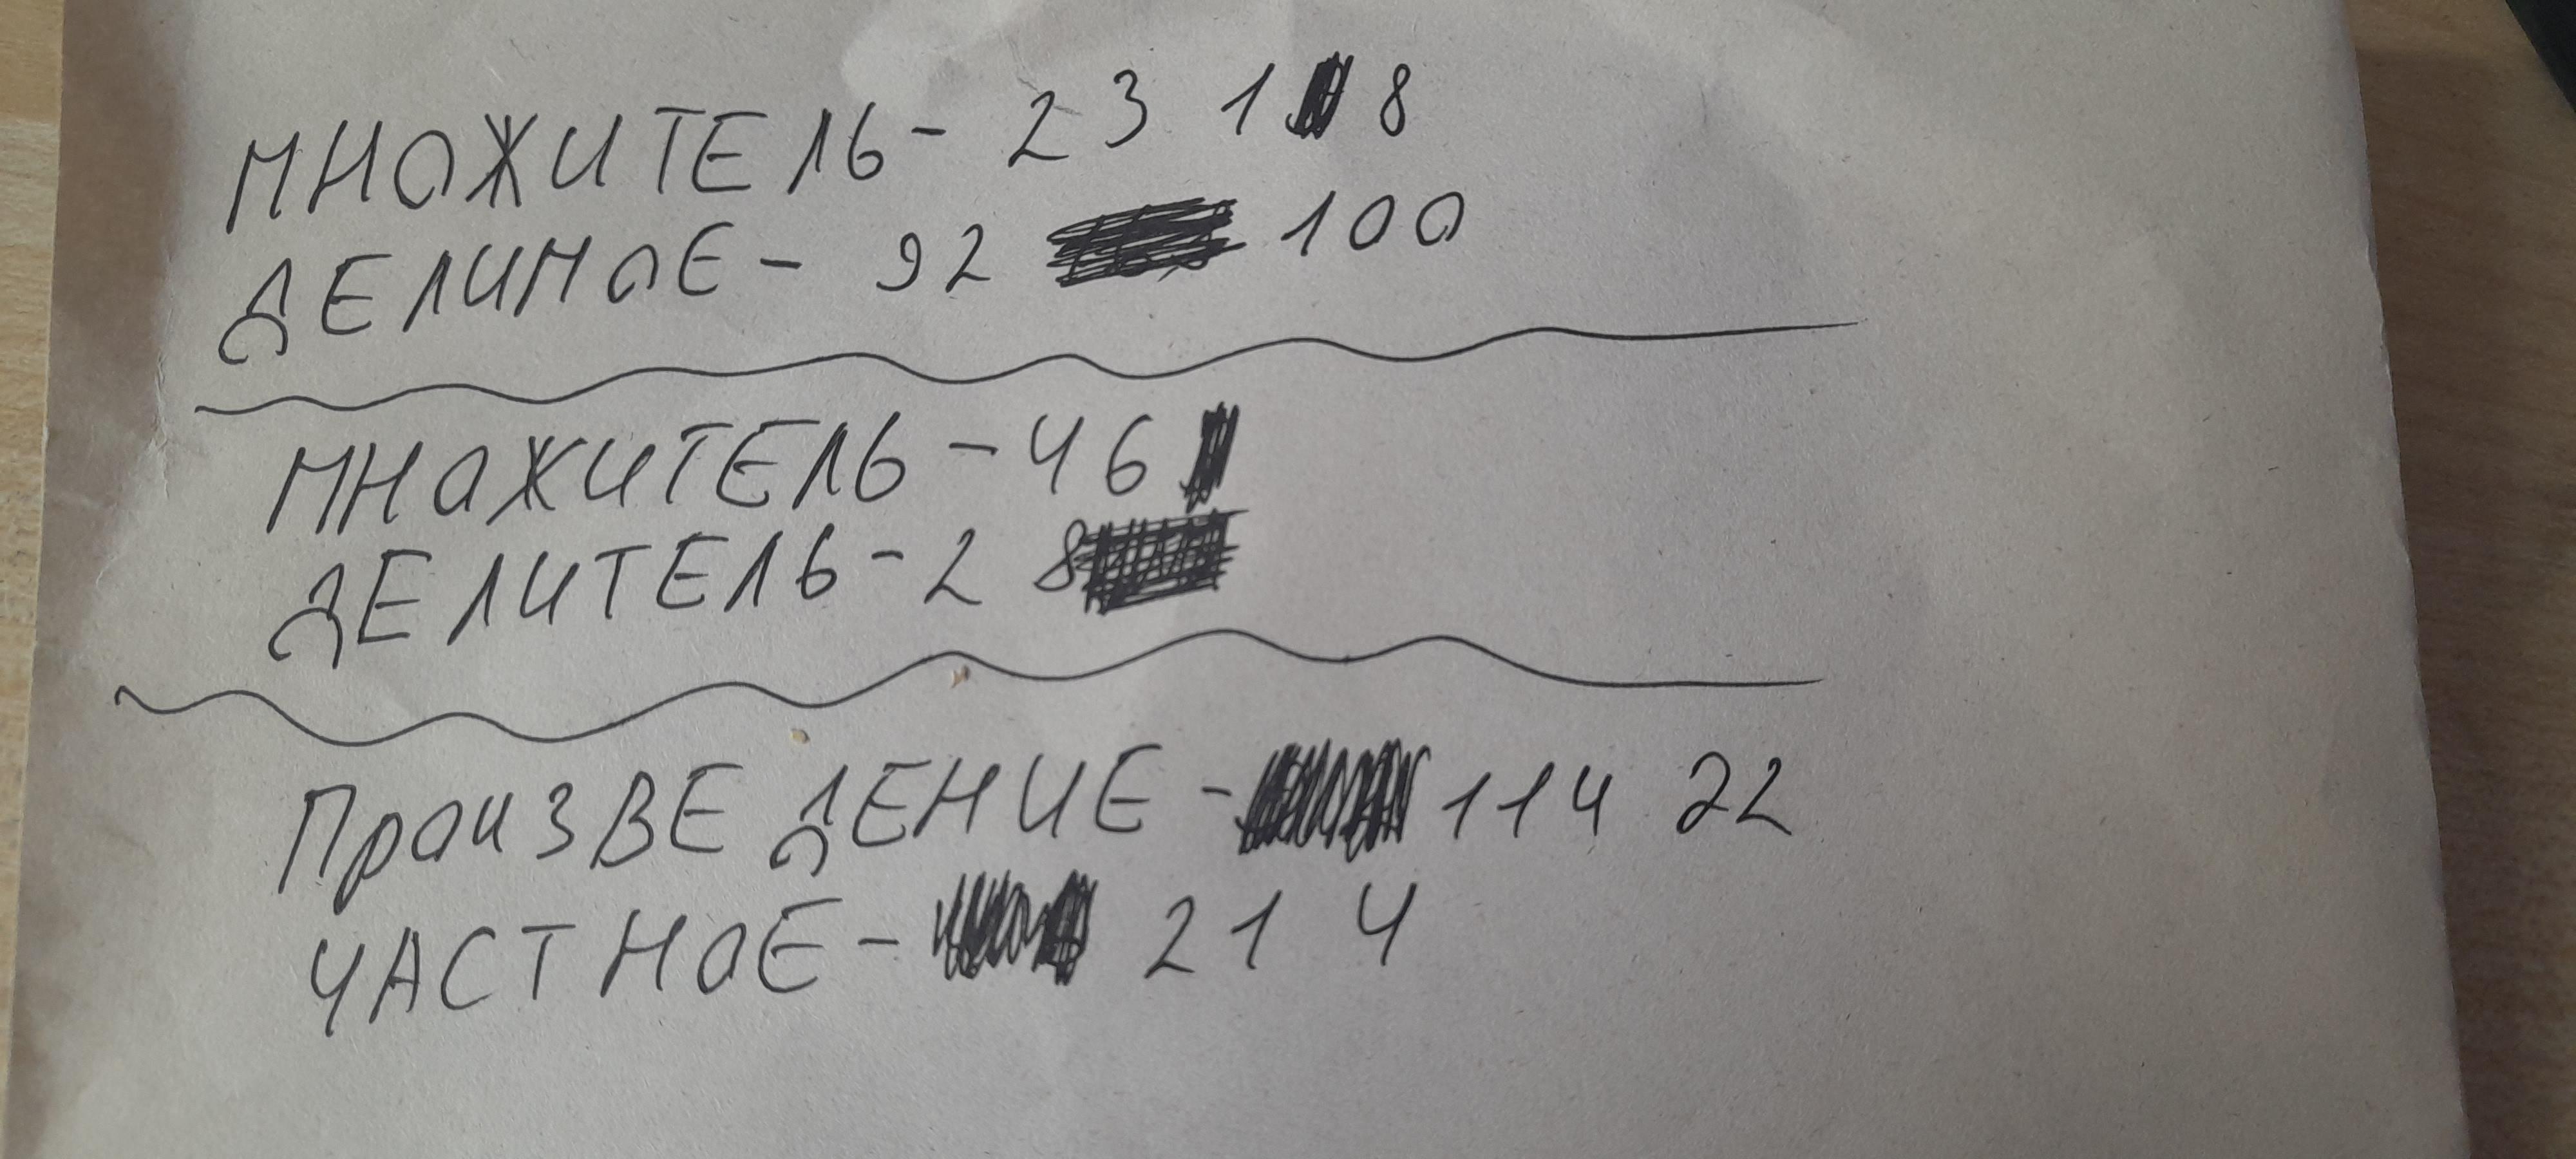 МНОЖИТЕЛЬ - 23 1 8
ДЕЛИМОЕ - 92 100
МНОЖИТЕЛЬ - 46
ДЕЛИТЕЛЬ - 2 8
ПРОИЗВЕДЕНИЕ - 114 22
ЧАСТНОЕ - 21 4